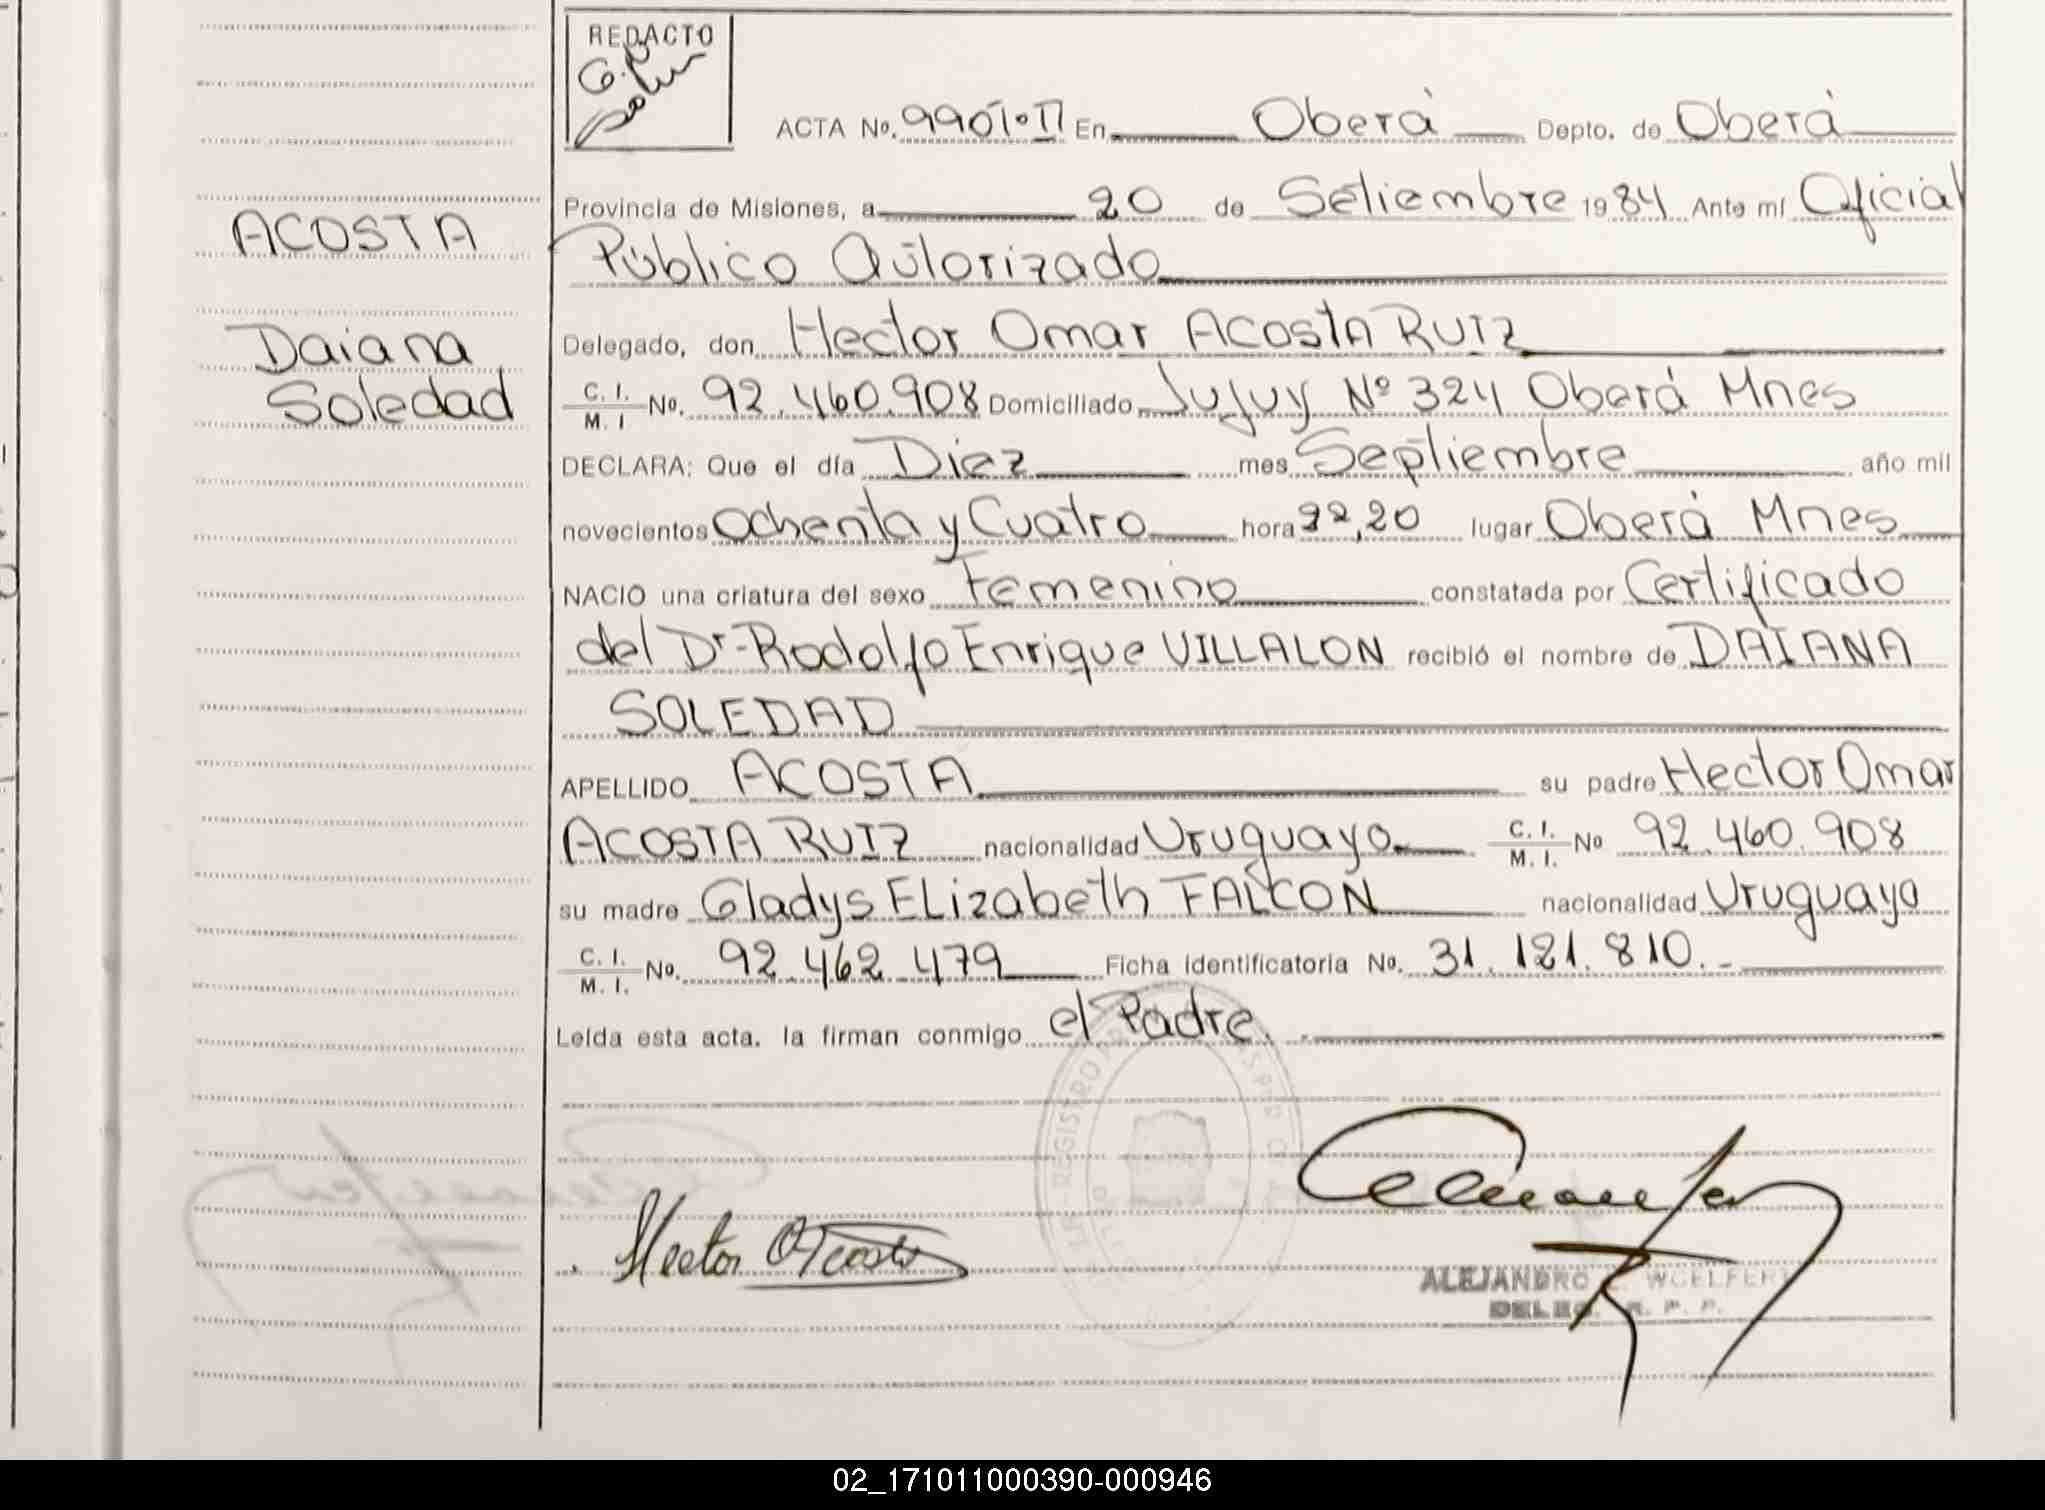 REDACTO
ACTA No. 9901·II En Oberá Depto. de Oberá
Provincia de Misiones, a 20 de Setiembre 1984 Ante mí Oficial
Público Autorizado
ACOSTA
Delegado, don Hector Omar ACOSTA RUIZ
Daiana
Soledad
C. I. M. I No. 92.460.908 Domiciliado Jujuy Nº 324 Oberá Mnes
DECLARA: Que el día Diez mes Septiembre año mil
novecientos Ochenta y Cuatro hora 22,20 lugar Oberá Mnes
NACIO una criatura del sexo Femenino constatada por Certificado
del Dr. Rodolfo Enrique VILLALON recibió el nombre de DAIANA
SOLEDAD
APELLIDO ACOSTA su padre Hector Omar
ACOSTA RUIZ nacionalidad Uruguayo C. I. M. I. No 92.460.908
su madre Gladys ELizabeth FALCON nacionalidad Uruguaya
C. I. M. I. No. 92.462.479 Ficha identificatoria No. 31.121.810.-
Leída esta acta, la firman conmigo el Padre.
Hector O Acosta
ALEJANDRO WOELFERT
DELEG. R. P. P.
02_171011000390-000946